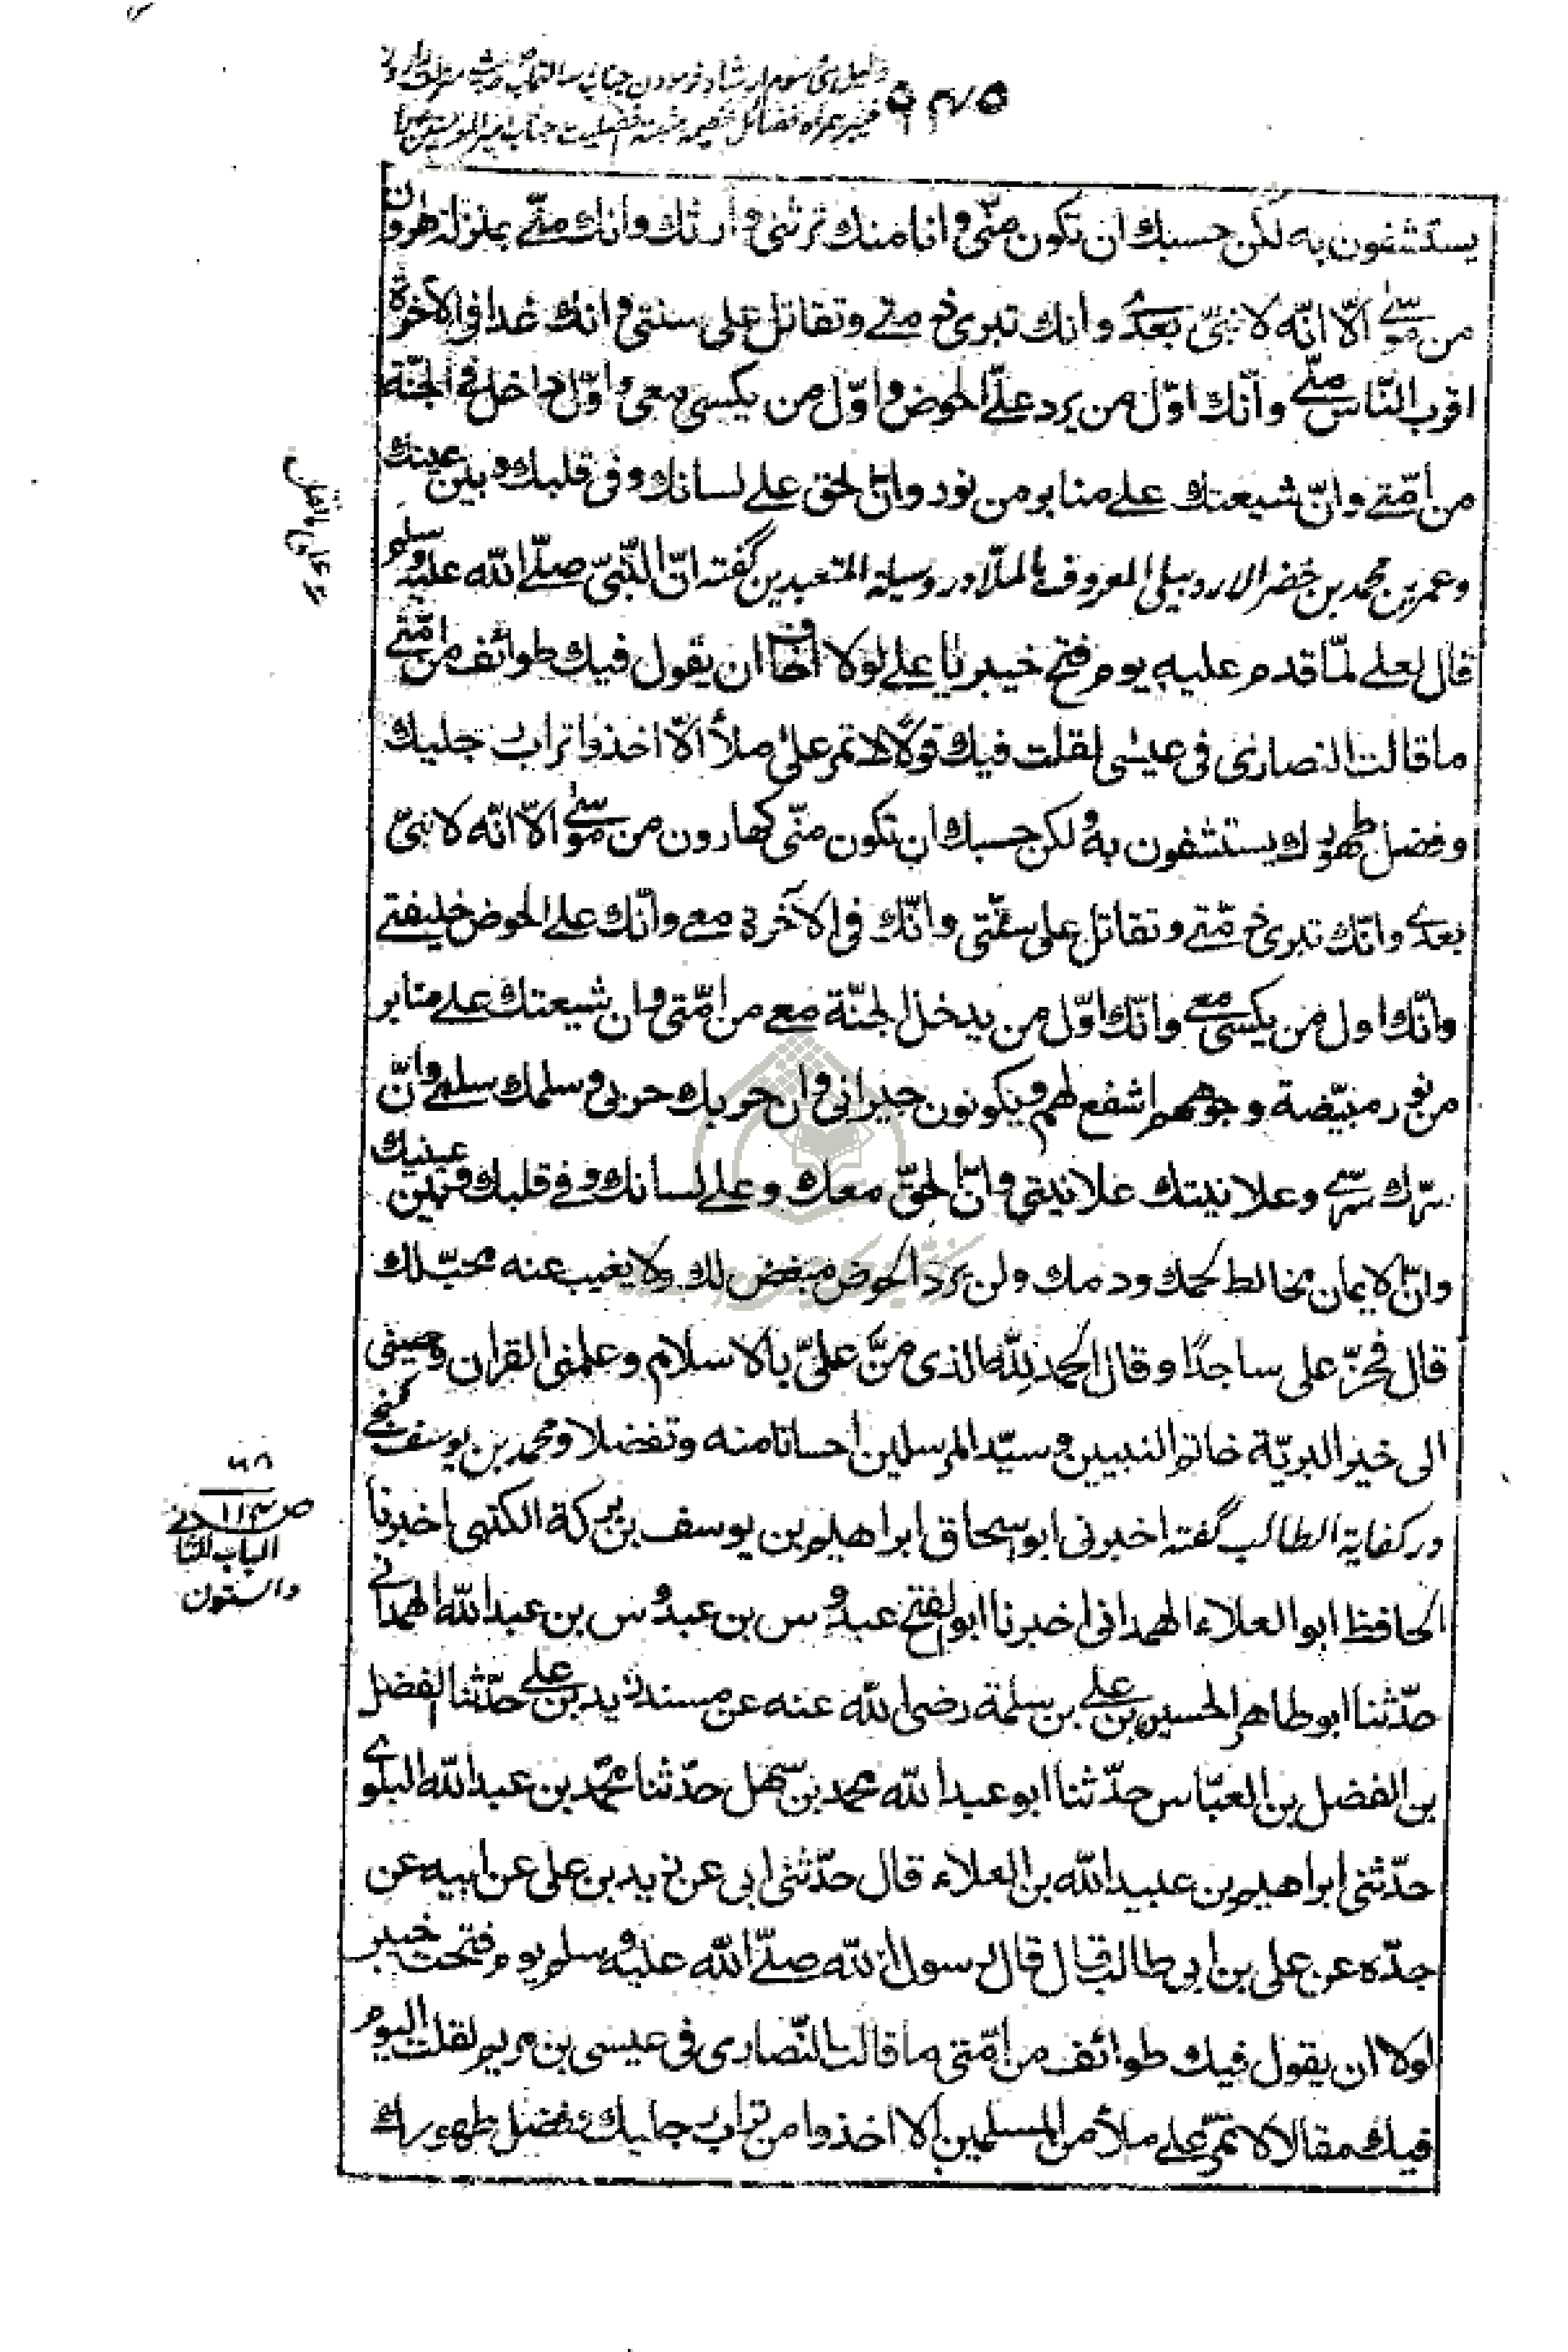 دلیل سی سوم ارشاد فرمودن جناب رسالتمآب
۵۴۵
خیبر همراه فضائل عظیمه مثبته افضلیت جناب امیر المؤمنین
یستشفون به لکن حسبك ان تکون منّی وانا منك ترثنی وارثك وانك منّی بمنزلة هرون
من موسی الّا انّه لا نبیّ بعدی وانك تبری ذمتی وتقاتل علی سنتی وانك غدا فی الآخرة
اقرب النّاس منّی وانّك اوّل من یرد علیّ الحوض واوّل من یکسی معی واوّل داخل فی الجنّة
من امّتی وانّ شیعتك علی منابر من نور وانّ الحق علی لسانك وفی قلبك وبین عینك
وعمر بن محمد بن خضر الاردبیلی المعروف بالملّا در وسیلة المتعبدین گفته انّ النّبیّ صلّی الله علیه وسلم
قال لعلی لمّا قدم علیه یوم فتح خیبر یا علی لولا اخاف ان یقول فیك طوائف من امّتی
ما قالت النصاری فی عیسی لقلت فیك قولًا لا تمر علی ملأ الّا اخذوا تراب رجلیك
وفضل طهورك یستشفون به ولکن حسبك ان تکون منّی کهارون من موسی الّا انّه لا نبیّ
بعدی وانّك تبری ذمّتی وتقاتل علی سنّتی وانّك فی الآخرة معی وانّك علی الحوض خلیفتی
وانّك اول من یکسی معی وانّك اوّل من یدخل الجنّة معی من امّتی وان شیعتك علی منابر
من نور مبیّضة وجوههم اشفع لهم ویکونون جیرانی وان حربك حربی وسلمك سلمی وانّ
سرّك سرّی وعلانیتك علانیتی وانّ الحقّ معك وعلی لسانك وفی قلبك وبین عینیك
وانّ الایمان مخالط لحمك ودمك ولن یرد الحوض مبغض لك ولا یغیب عنه محبّ لك
قال فخرّ علی ساجدًا وقال الحمد لِلّه الذی منَّ علیّ بالاسلام وعلمنی القران وحببنی
الی خیر البریّة خاتم النبیین وسیّد المرسلین احسانا منه وتفضلا ومحمد بن یوسف گنجی
در کفایة الطالب گفته اخبرنی ابو اسحاق ابراهیم بن یوسف بن برکة الکتبی اخبرنا
الحافظ ابو العلاء الهمدانی اخبرنا ابو الفتح عبدوس بن عبدوس بن عبد الله الهمدانی
حدّثنا ابو طاهر الحسین بن علی بن سلمة رضی الله عنه عن مسند زید بن علی حدّثنا الفضل
بن الفضل بن العبّاس حدّثنا ابو عبد الله محمد بن سهل حدّثنا محمّد بن عبد الله البلوی
حدّثنی ابراهیم بن عبید الله بن العلاء قال حدّثنی ابی عن زید بن علی عن ابیه عن
جدّه عن علی بن ابی طالب قال قال رسول الله صلّی الله علیه وسلم یوم فتحت خیبر
لولا ان یقول فیك طوائف من امّتی ما قالت النّصاری فی عیسی بن مریم لقلت الیوم
فیك مقالا لا تمرّ علی ملأ من المسلمین الا اخذوا من تراب رجلیك وفضل طهورك
۶۸
ص ۱۱۳
الباب الثانی
والستون